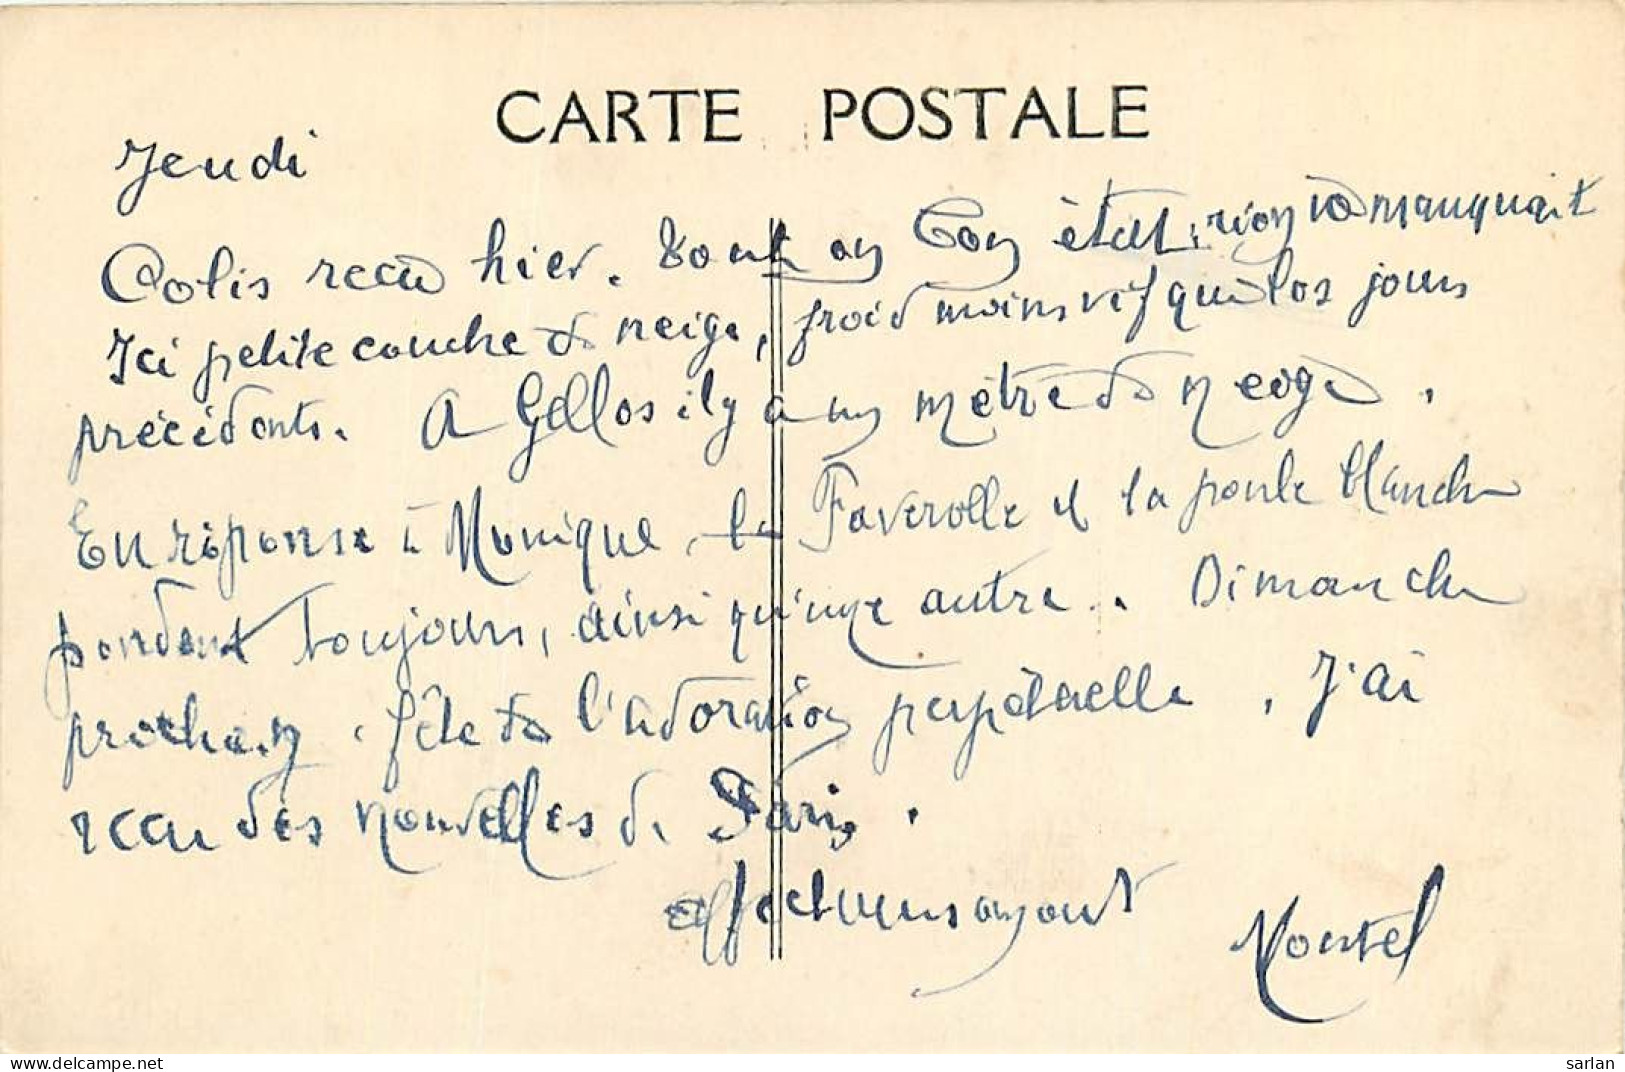 CARTE POSTALE
Jeudi
Colis reçu hier. Tout en bon état, rien ne manquait
Ici petite couche de neige, froid moins vif que les jours
précédents. A Gellos il y a un mètre de neige.
En réponse à Monique, la Faverolle et la poule blanche
pondent toujours, ainsi qu'une autre. Dimanche
prochain, fête de l'adoration perpétuelle, J'ai
reçu des nouvelles de Paris.
affectueusement
www.delcampe.net
sarlan